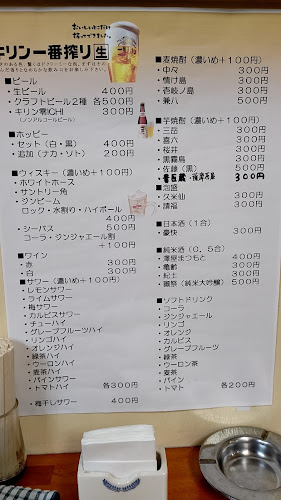 おいしいとこだけ
搾ってできました。
キリン一番搾り 生
■ビール
・生ビール 400円
・クラフトビール2種 各500円
・キリン零ICHI 300円
(ノンアルコールビール)
■ホッピー
・セット(白・黒) 400円
・追加(ナカ・ソト) 200円
■ウィスキー(濃いめ+100円)
・ホワイトホース
・サントリー角
・ジンビーム
ロック・水割り・ハイボール
400円
・シーバス 500円
コーラ・ジンジャエール割
+100円
■ワイン
・赤 300円
・白 300円
■サワー(濃いめ+100円)
・レモンサワー
・ライムサワー
・梅サワー
・カルピスサワー
・チューハイ
・グレープフルーツハイ
・リンゴハイ
・オレンジハイ
・緑茶ハイ
・ウーロンハイ
・麦茶ハイ
・パインサワー
・トマトハイ 各300円
・梅干しサワー 400円
■麦焼酎(濃いめ+100円)
・中々 300円
・情け島 300円
・壱岐ノ島 300円
・兼八 500円
■芋焼酎(濃いめ+100円)
・三岳 300円
・喜六 300円
・桜井 300円
・黒霧島 300円
・佐藤(黒) 500円
300円
■泡盛
・久米仙 300円
・請福 300円
■日本酒(1合)
・豪快 300円
■純米酒(0.5合)
・澤屋まつもと 400円
・亀齢 400円
・紀土 300円
・獺祭(純米大吟醸) 500円
■ソフトドリンク
・コーラ
・ジンジャエール
・リンゴ
・オレンジ
・カルピス
・グレープフルーツ
・緑茶
・ウーロン茶
・麦茶
・パイン
・トマト 各200円